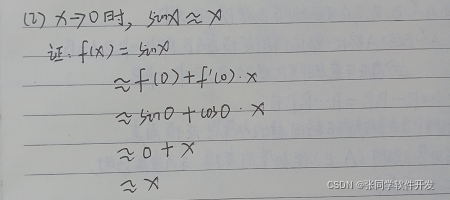 (2) x→0时, sinx≈x
证: f(x) = sinx
≈ f(0)+f'(0)·x
≈ sin0 + cos0 · x
≈ 0 + x
≈ x
CSDN @张同学软件开发